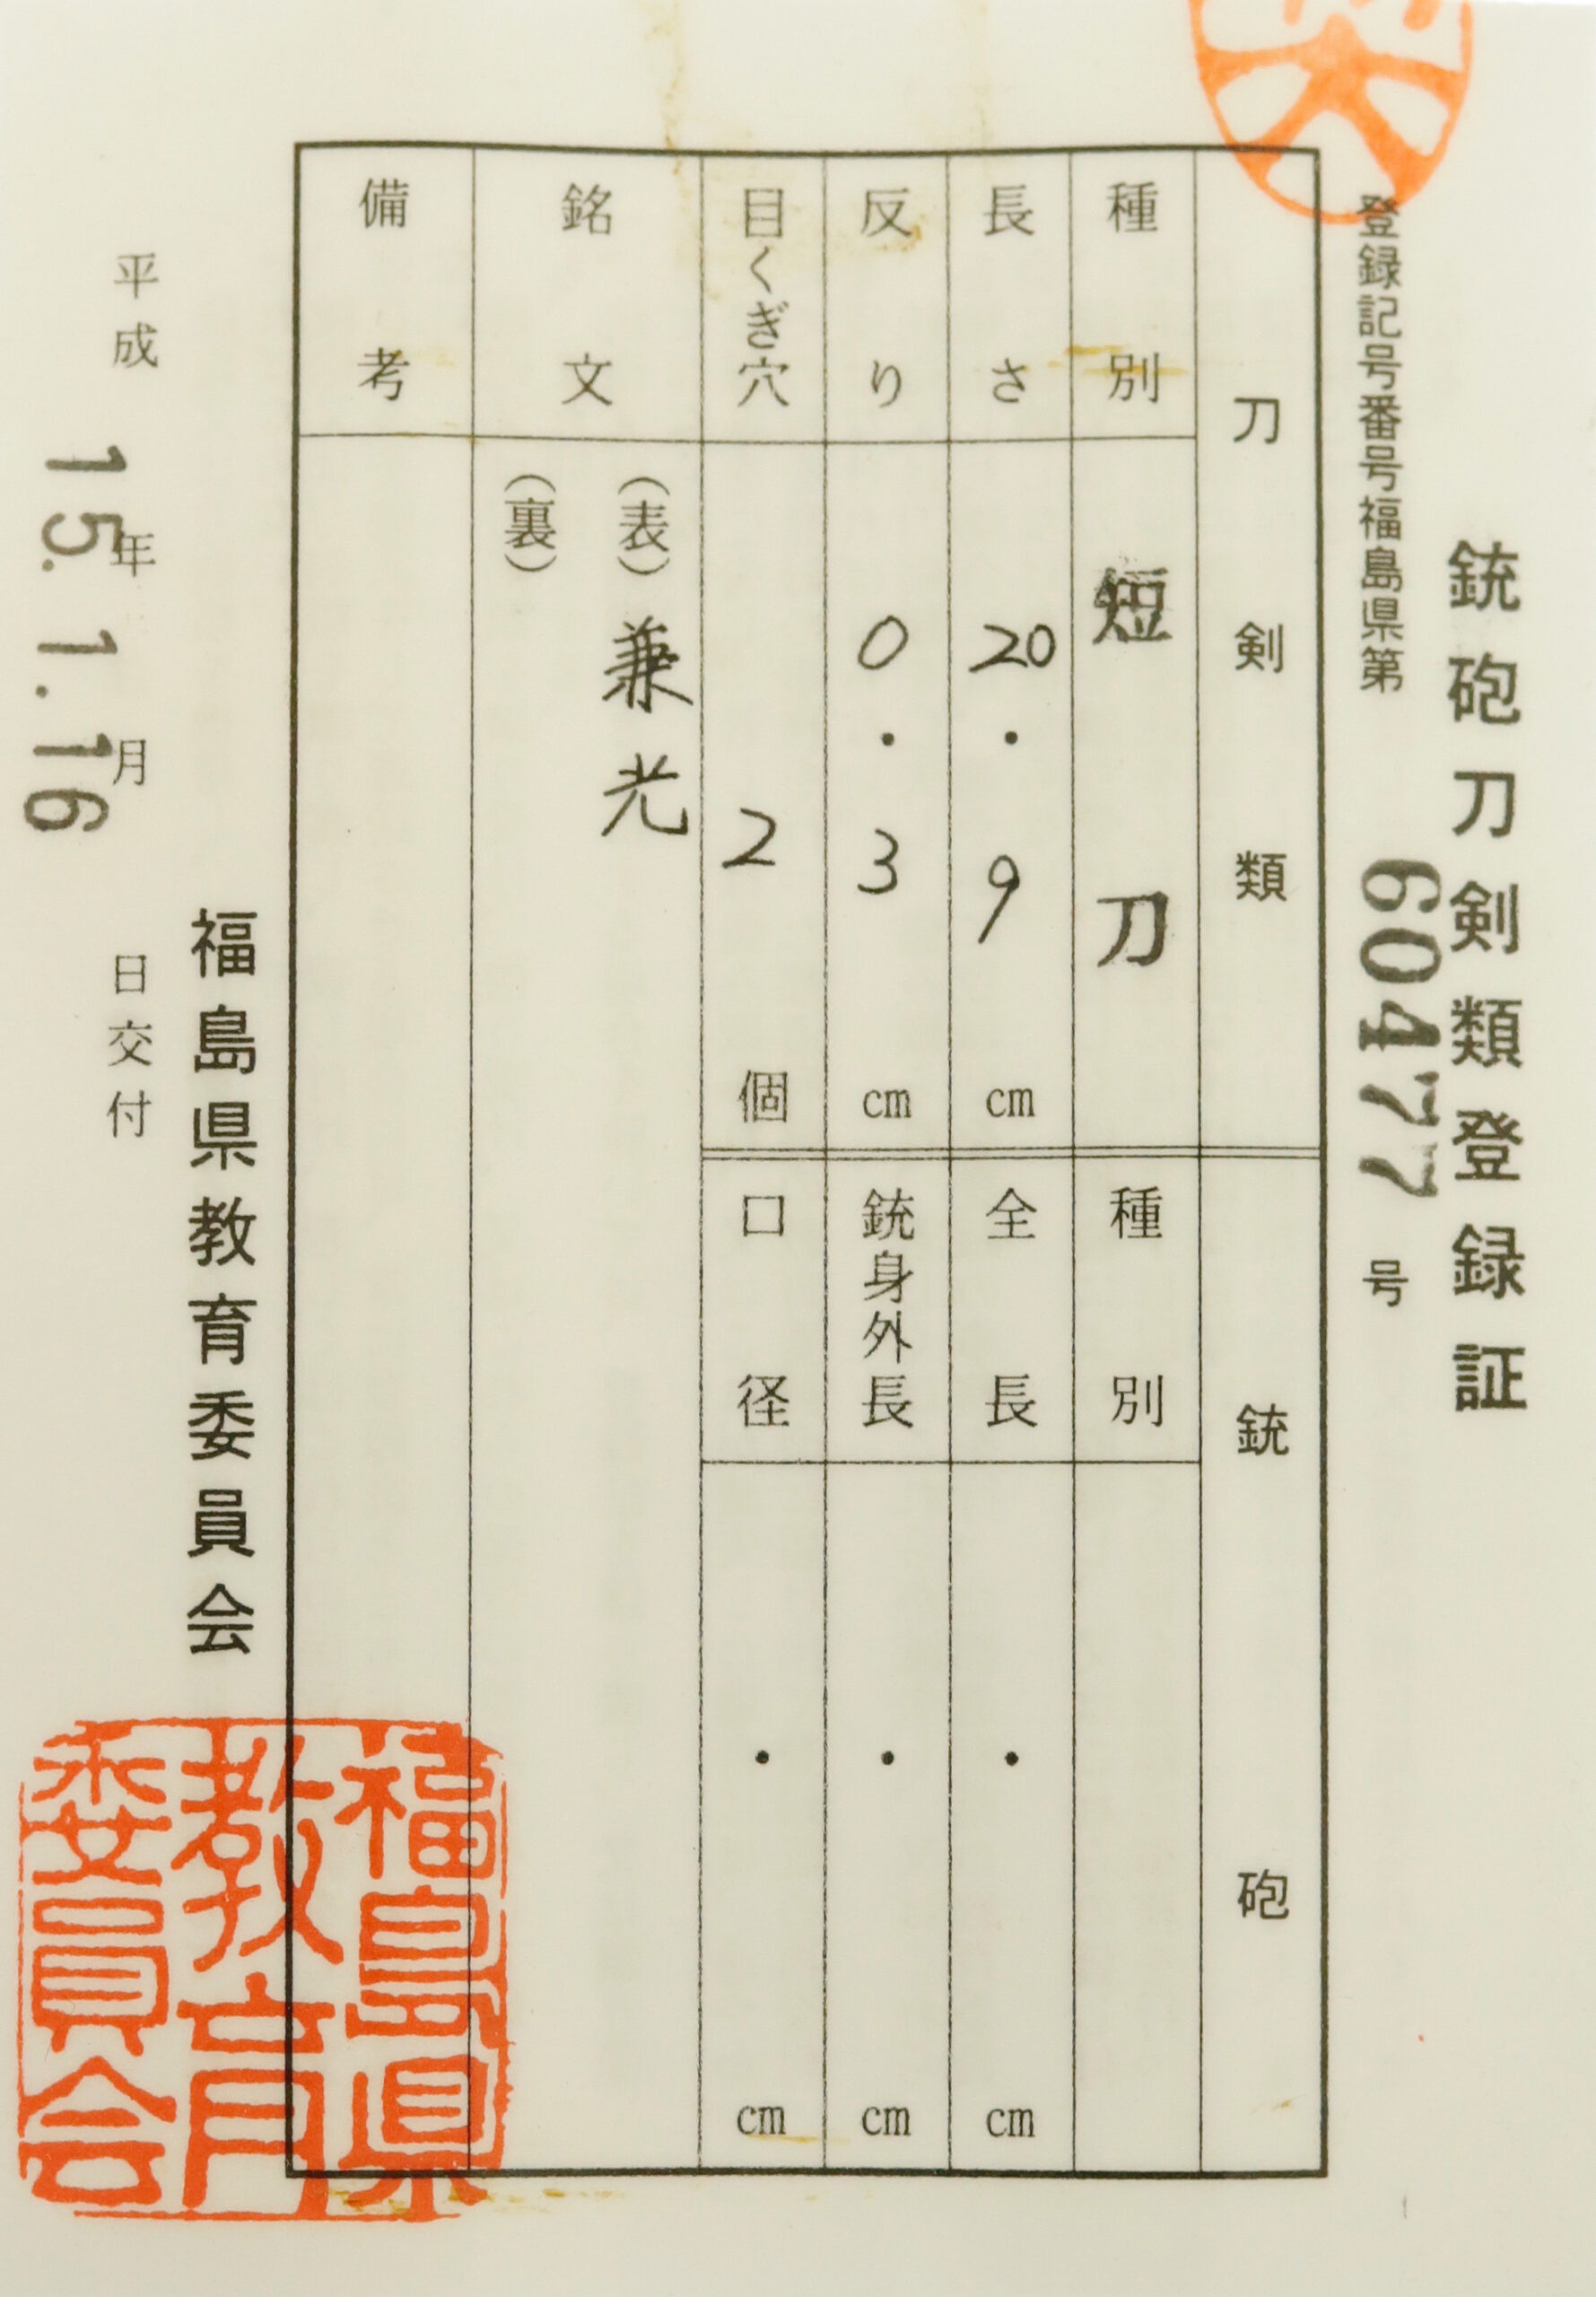 銃砲刀剣類登録証
登録記号番号福島県第 60477 号
刀剣類
種別 短刀
長さ 20.9 cm
反り 0.3 cm
目くぎ穴 2 個
銃砲
種別
全長 ・ cm
銃身外長 ・ cm
口径 ・ cm
銘文 (表) 兼光
(裏)
備考
福島県教育委員会
平成 15年 1.月 16 日交付
福島県
教育
委員会